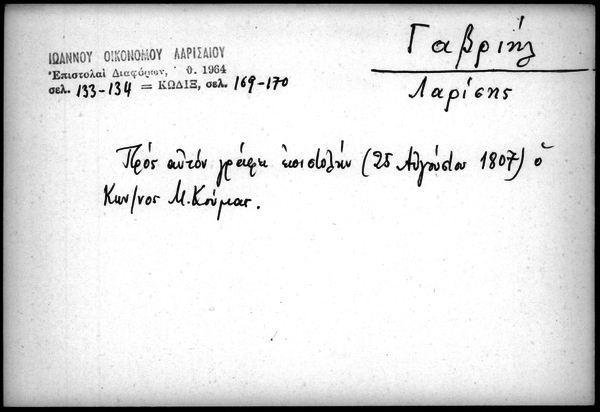 ΙΩΑΝΝΟΥ ΟΙΚΟΝΟΜΟΥ ΛΑΡΙΣΑΙΟΥ
Ἐπιστολαὶ Διαφόρων, 1964
σελ. 133-134 = ΚΩΔΙΞ, σελ. 169-170
Γαβριήλ
Λαρίσης
Πρός αὐτόν γράφει ἐπιστολήν (25 Αὐγούστου 1807) ὁ
Κων/νος Μ. Κούμας.